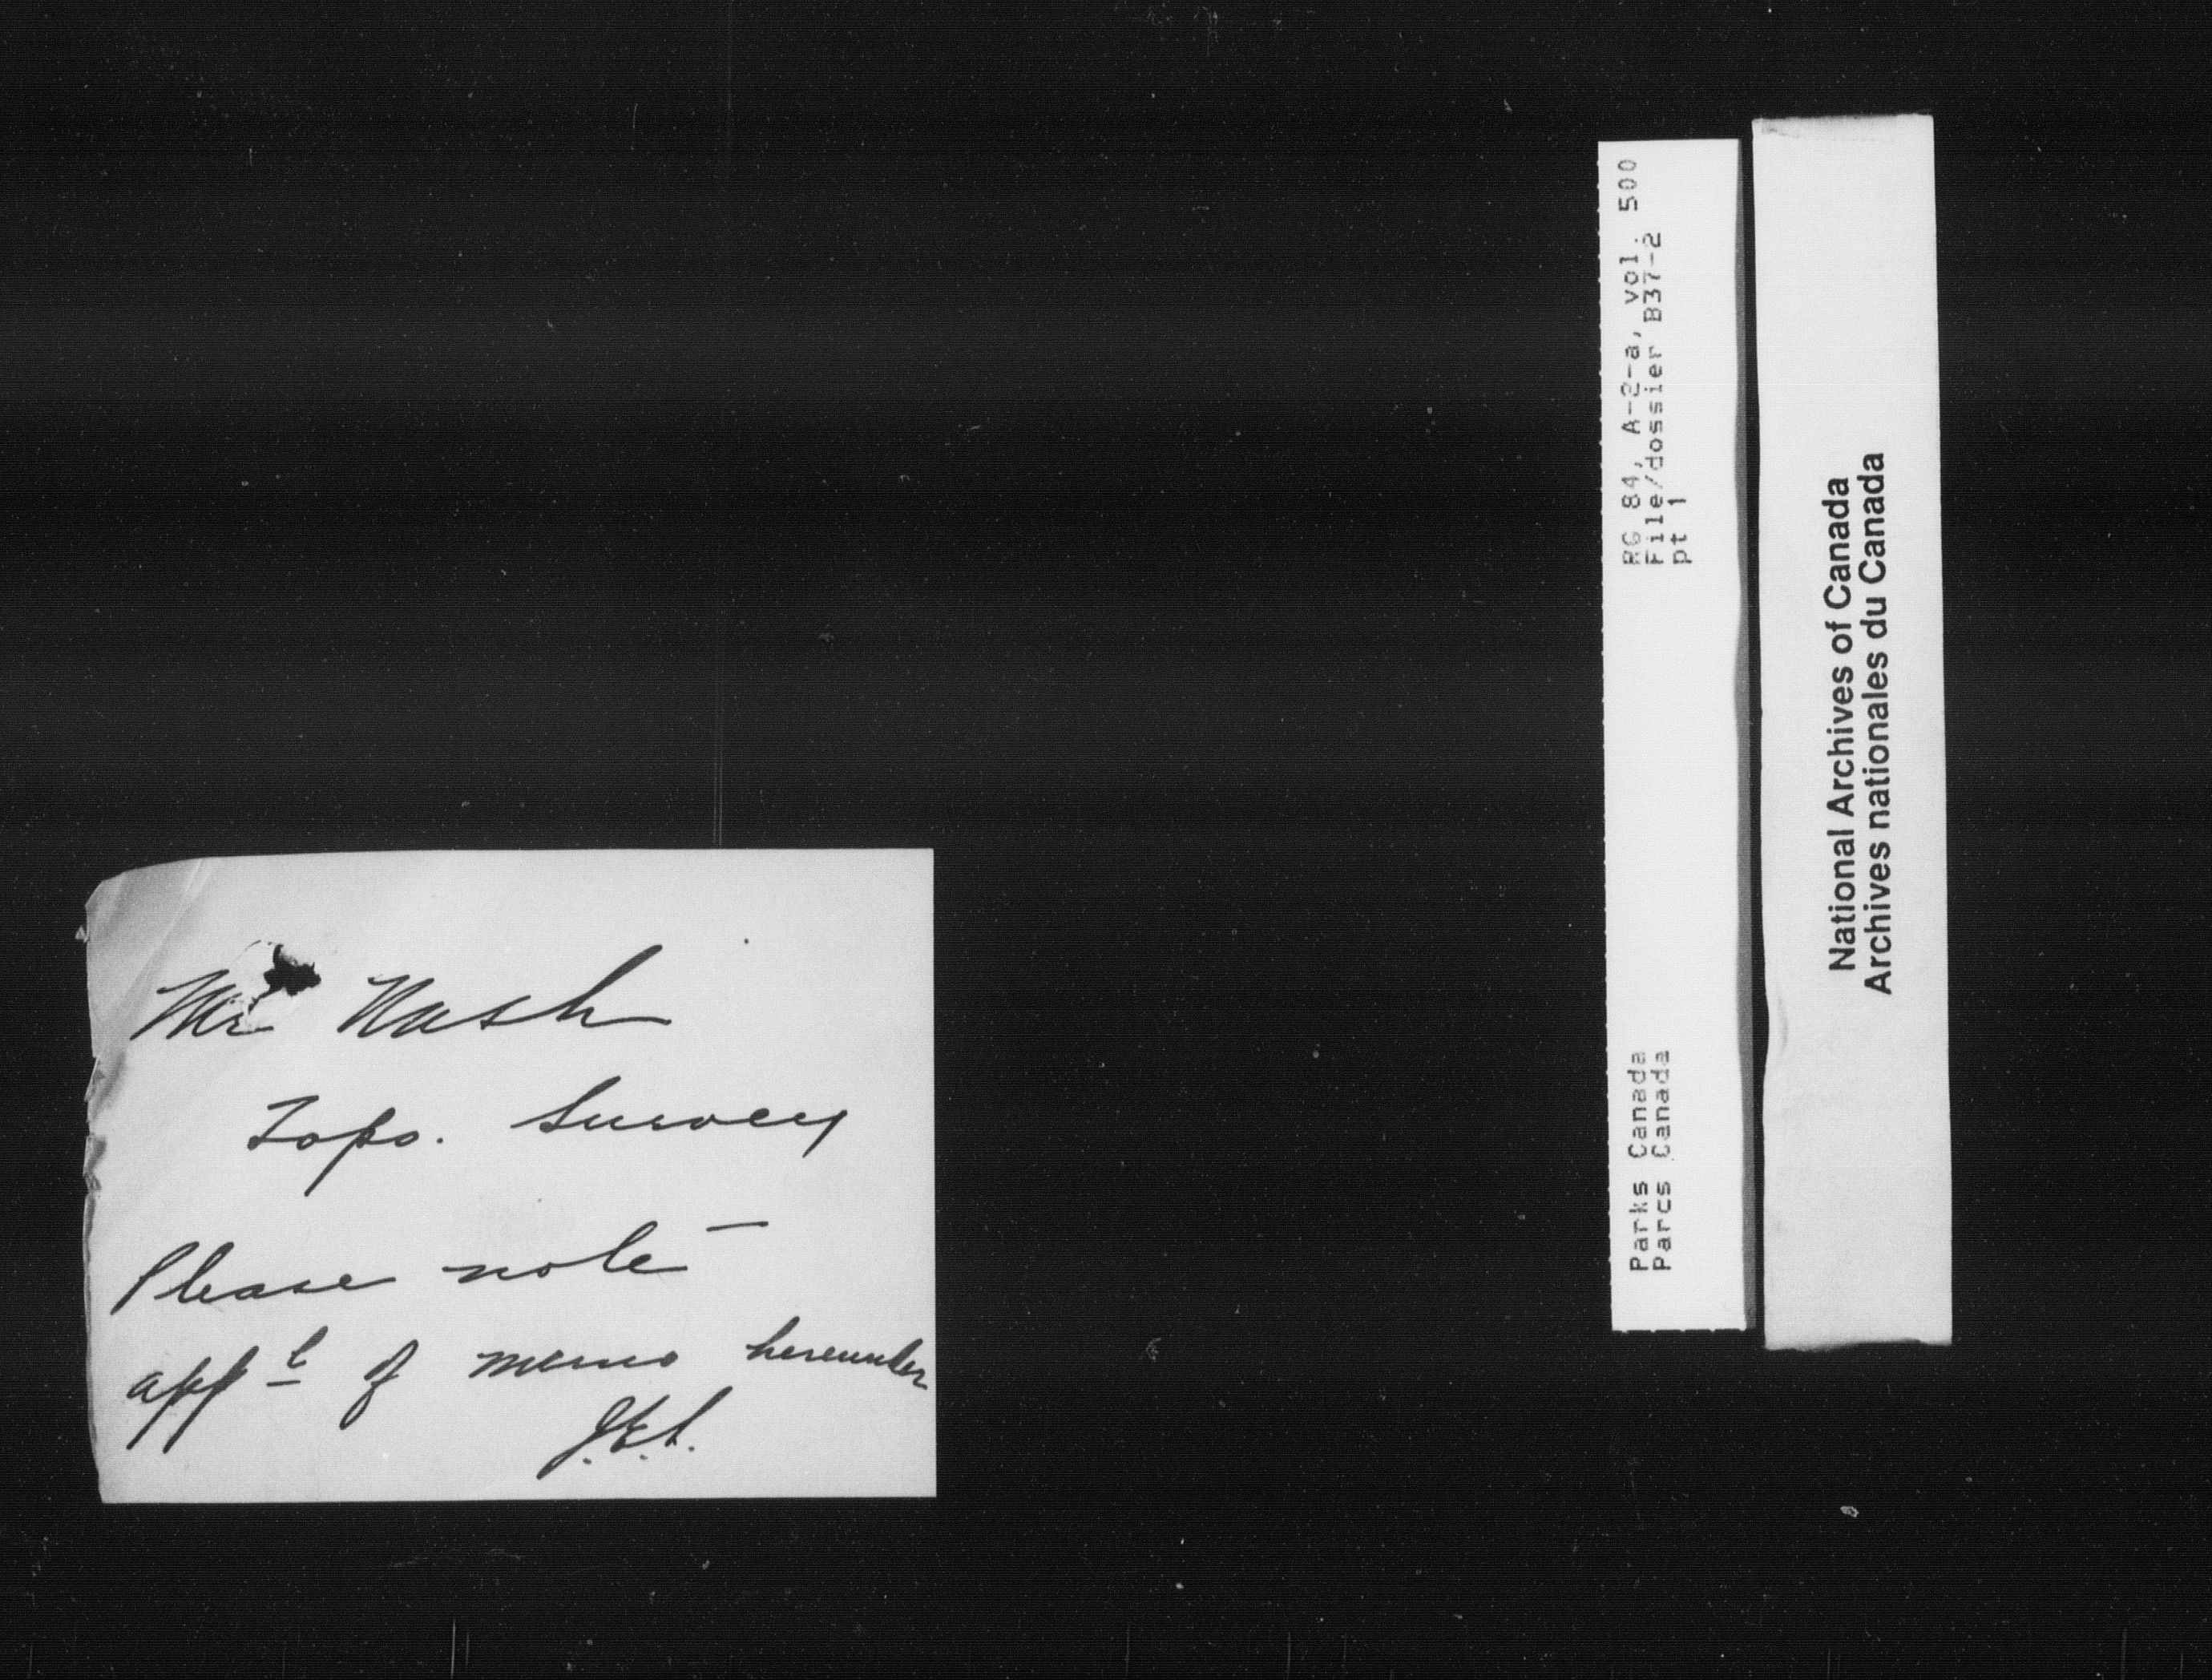 Mr Nash
Topo. Survey
Please note
appl of memo hereunder
RG 84, A-2-a, vol. 500
File/dossier B37-2
pt 1
Parks Canada
Parcs Canada
National Archives of Canada
Archives nationales du Canada